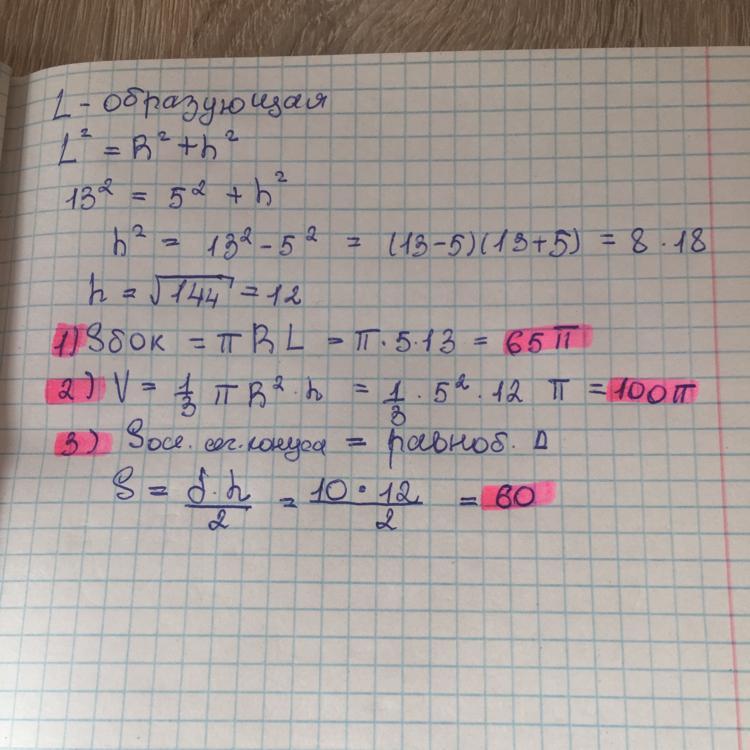 L - образующая
L² = R² + h²
13² = 5² + h²
h² = 13² - 5² = (13-5)(13+5) = 8 · 18
h = √144 = 12
1) Sбок = π R L = π · 5 · 13 = 65π
2) V = 1/3 π R² · h = 1/3 · 5² · 12 π = 100π
3) Sосе. сеч. конуса = равноб. Δ
S = б · h / 2 = 10 · 12 / 2 = 60